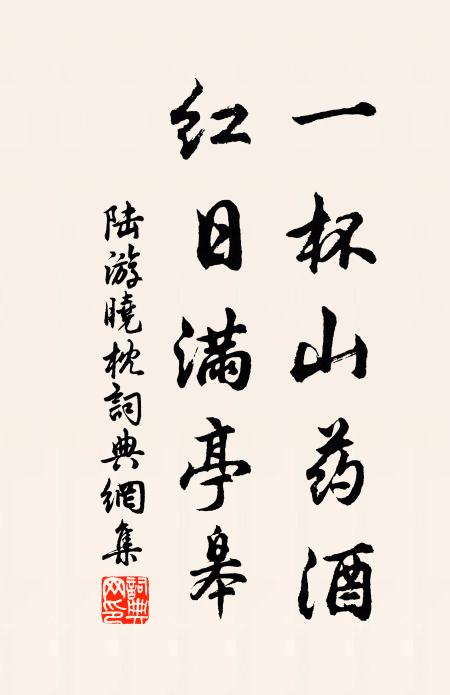 一杯山药酒
红日满亭皋
陆游晓枕詞典網集
詞典网印